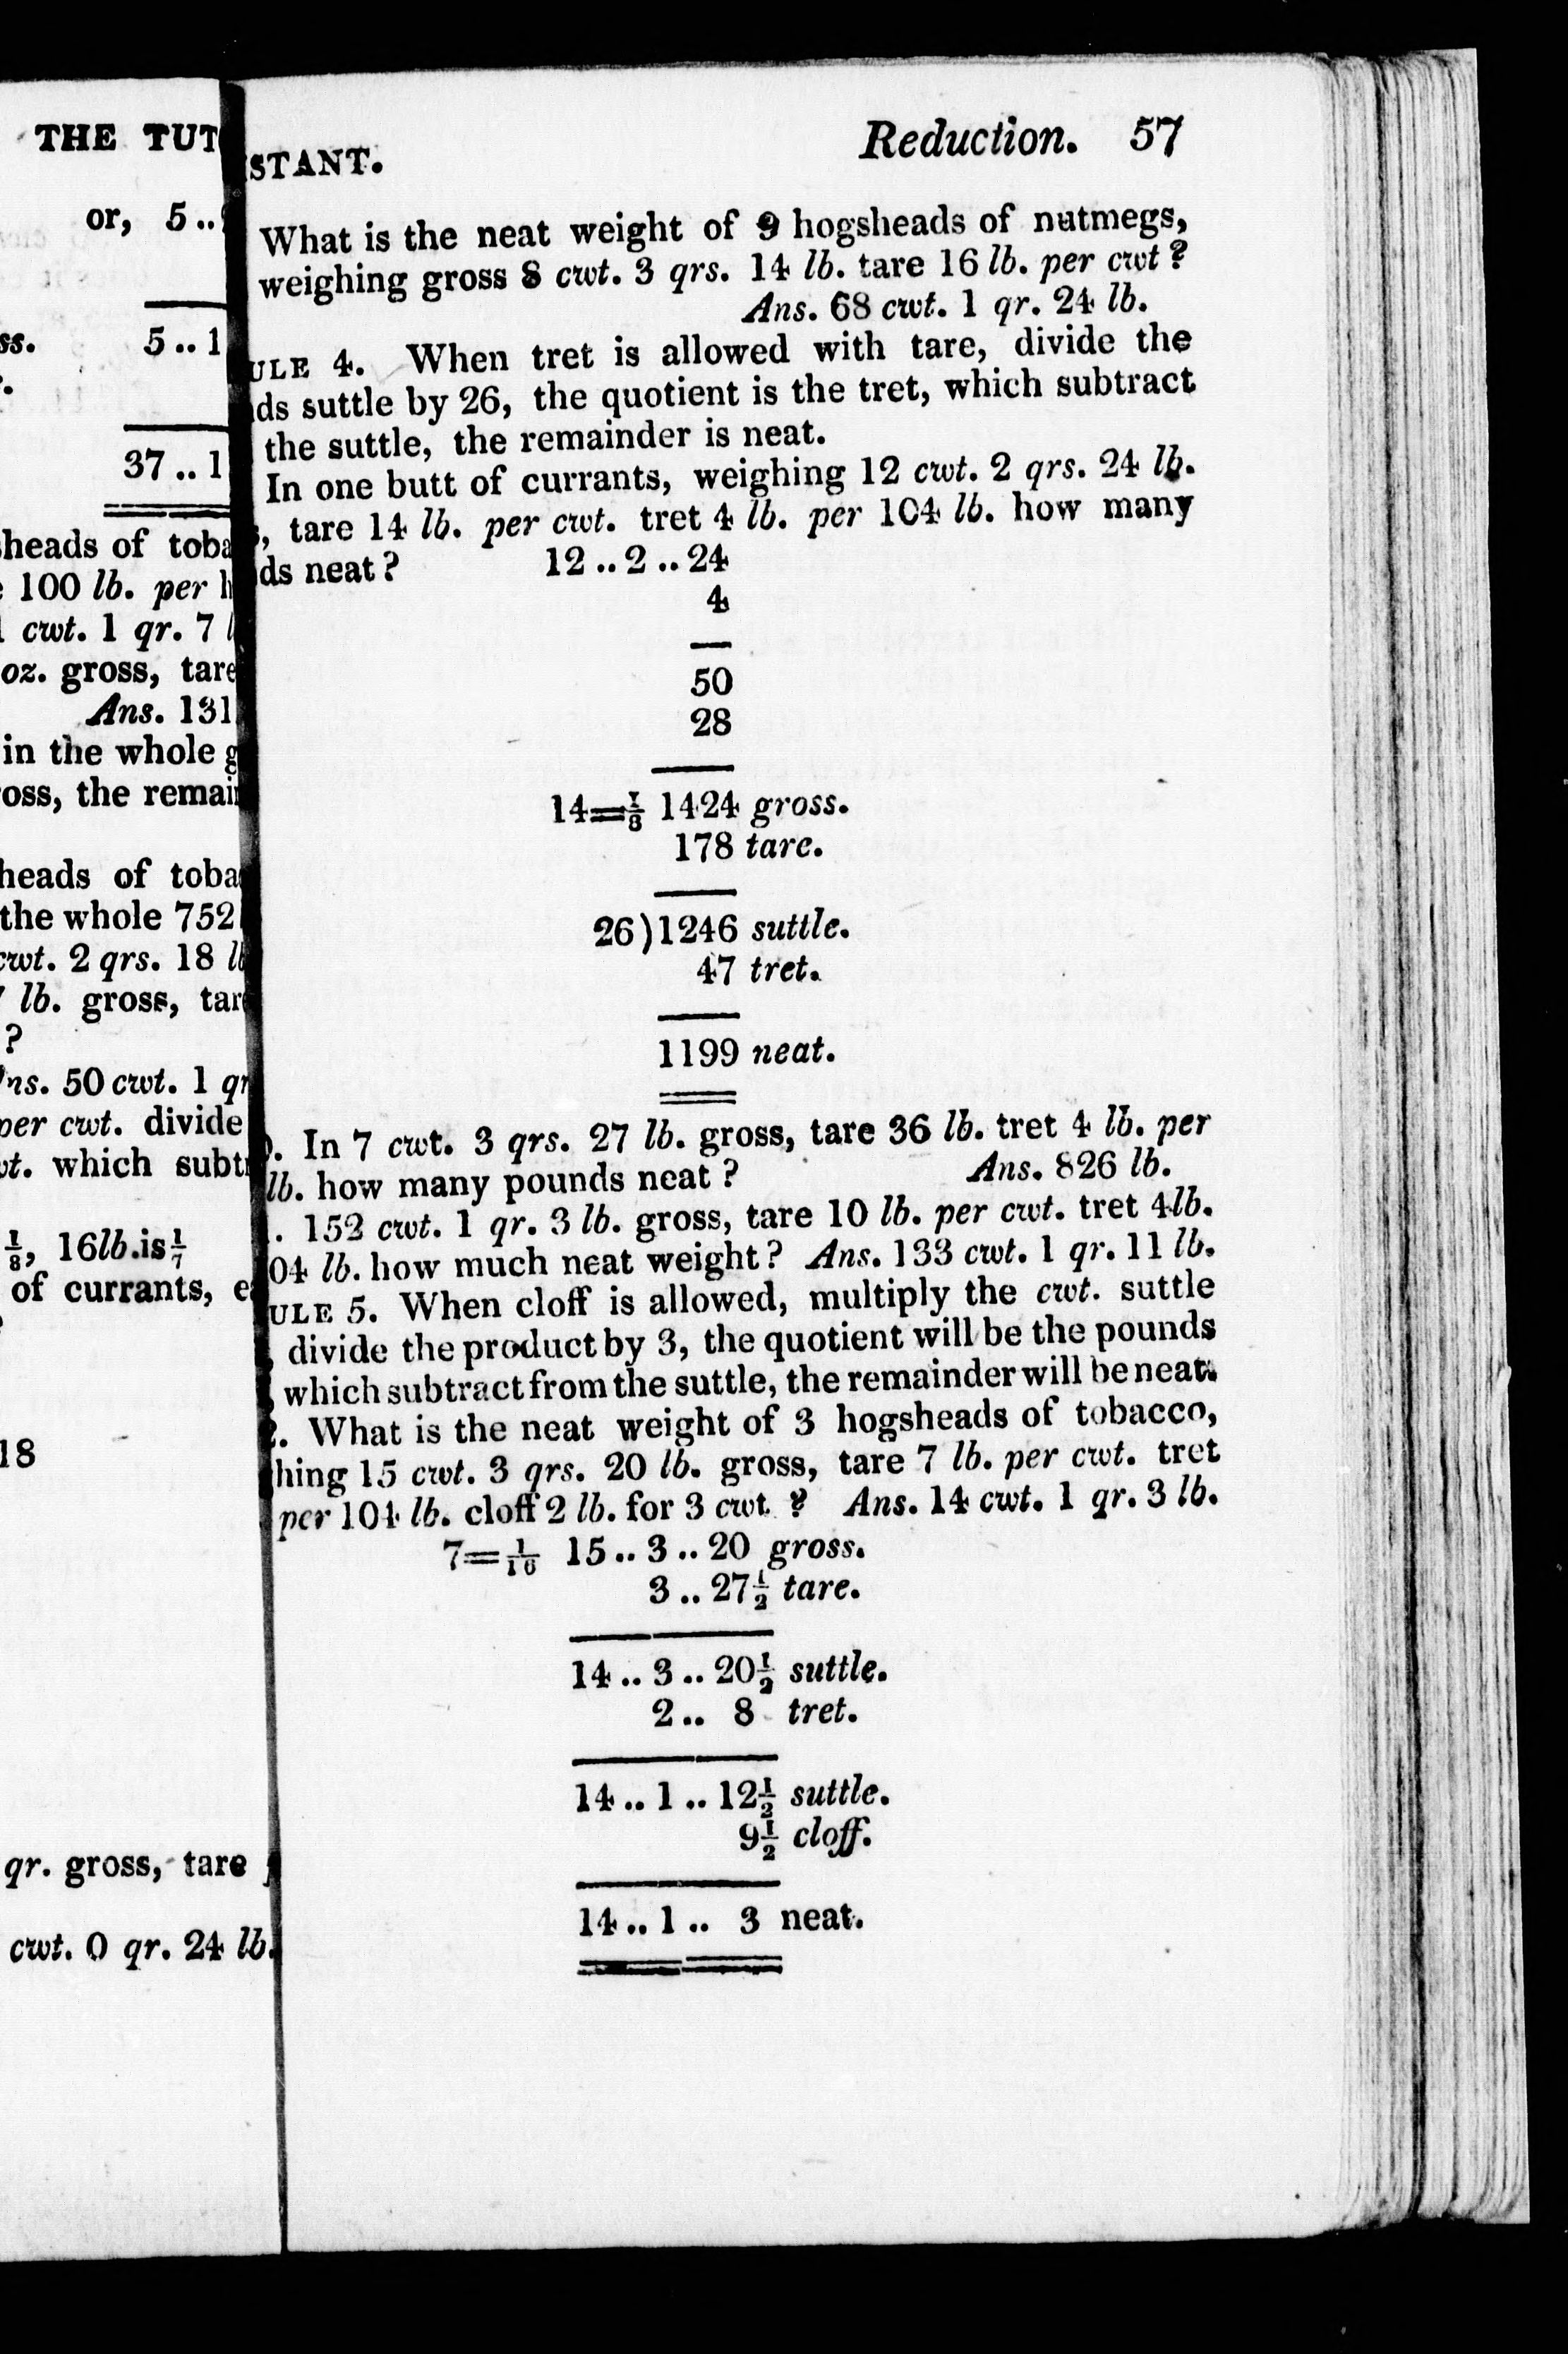 THE TUT
or, 5..
ss. 5..1
37..1
heads of toba
100 lb. per h
cwt. 1 qr. 7 l
oz. gross, tare
Ans. 131
in the whole g
oss, the remain
heads of toba
the whole 752
cwt. 2 qrs. 18 lb
lb. gross, tare
?
Ans. 50 cwt. 1 qr
per cwt. divide
wt. which subt
1/8, 16lb.is 1/7
of currants, e
18
qr. gross, tare
cwt. 0 qr. 24 lb.
STANT. Reduction. 57
What is the neat weight of 9 hogsheads of nutmegs,
weighing gross 8 cwt. 3 qrs. 14 lb. tare 16 lb. per cwt?
Ans. 68 cwt. 1 qr. 24 lb.
ULE 4. When tret is allowed with tare, divide the
ds suttle by 26, the quotient is the tret, which subtract
the suttle, the remainder is neat.
In one butt of currants, weighing 12 cwt. 2 qrs. 24 lb.
, tare 14 lb. per cwt. tret 4 lb. per 104 lb. how many
ds neat? 12..2..24
4
50
28
14=1/8 1424 gross.
178 tare.
26)1246 suttle.
47 tret.
1199 neat.
. In 7 cwt. 3 qrs. 27 lb. gross, tare 36 lb. tret 4 lb. per
lb. how many pounds neat? Ans. 826 lb.
. 152 cwt. 1 qr. 3 lb. gross, tare 10 lb. per cwt. tret 4lb.
04 lb. how much neat weight? Ans. 133 cwt. 1 qr. 11 lb.
ULE 5. When cloff is allowed, multiply the cwt. suttle
divide the product by 3, the quotient will be the pounds
which subtract from the suttle, the remainder will be neat.
. What is the neat weight of 3 hogsheads of tobacco,
hing 15 cwt. 3 qrs. 20 lb. gross, tare 7 lb. per cwt. tret
per 104 lb. cloff 2 lb. for 3 cwt ? Ans. 14 cwt. 1 qr. 3 lb.
7=1/16 15..3..20 gross.
3..27 1/2 tare.
14..3..20 1/2 suttle.
2.. 8 tret.
14..1..12 1/2 suttle.
9 1/2 cloff.
14..1.. 3 neat.